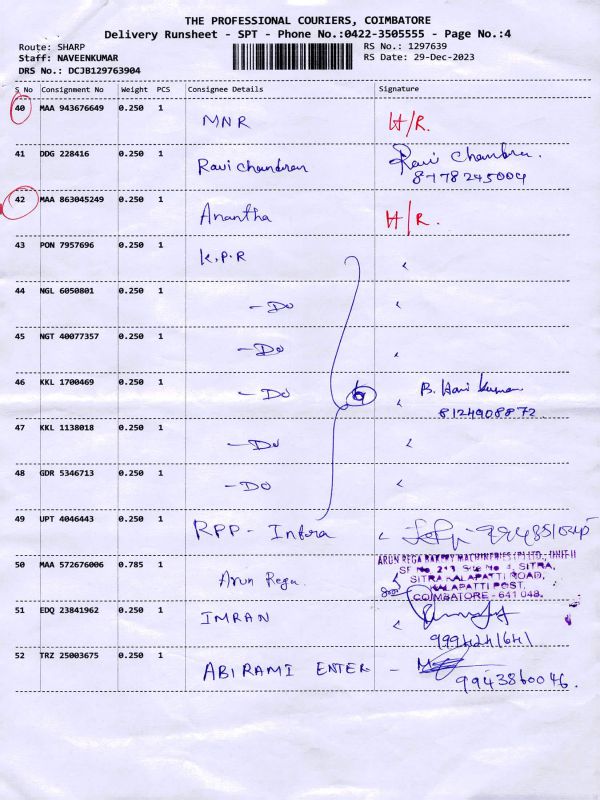 THE PROFESSIONAL COURIERS, COIMBATORE
Delivery Runsheet - SPT - Phone No.:0422-3505555 - Page No.:4
Route: SHARP
Staff: NAVEENKUMAR
DRS No.: DCJB129763904
RS No.: 1297639
RS Date: 29-Dec-2023
S No Consignment No Weight PCS Consignee Details Signature
40 MAA 943676649 0.250 1 MNR H/R.
41 DDG 228416 0.250 1 Ravi chandran Ravi Chandra.
8778245004
42 MAA 863045249 0.250 1 Anantha H/R.
43 PON 7957696 0.250 1 K.P.R
44 NGL 6050801 0.250 1 - Do
45 NGT 40077357 0.250 1 - Do
46 KKL 1700469 0.250 1 - Do 6 B. Hari kumar
8124908872
47 KKL 1138018 0.250 1 - Do
48 GDR 5346713 0.250 1 - DO
49 UPT 4046443 0.250 1 RPP - Infra
50 MAA 572676006 0.785 1 Arun Rega ARUN REGA MACHINERIES (P) LTD., UNIT-II
SF No. 213 Site No 4, SITRA,
SITRA KALAPATTI ROAD,
KALAPATTI POST,
COIMBATORE - 641 048.
51 EDQ 23841962 0.250 1 IMRAN
9994241641
52 TRZ 25003675 0.250 1 ABIRAMI ENTER -
9943860046.